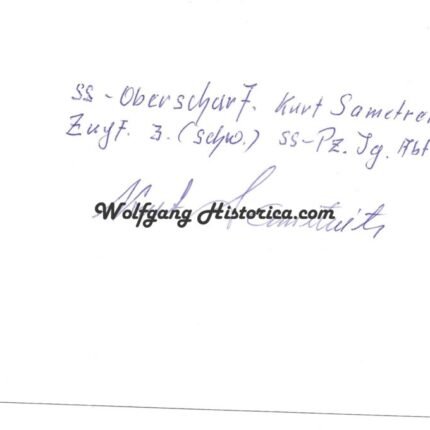 SS-Oberscharf. Kurt Sametrei
Zugf. 3. (schw.) SS-Pz. Jg. Abt
Wolfgang Historica.com
Kurt Sametreiter